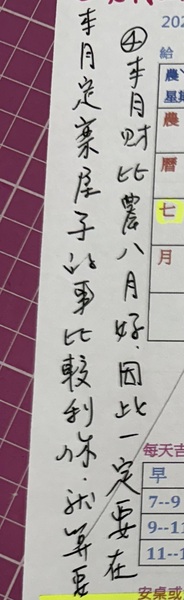 ④本月财比農八月好.因此一定要在
本月定寨屋子的事比較利你.　算要
202
給
農
星期
農
曆
七
月
每天吉
早
7--9
9--11
11--1
安桌或